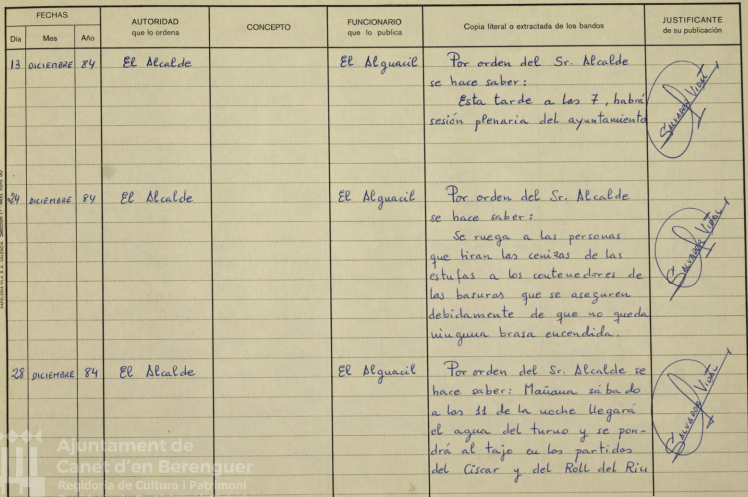 FECHAS
Día Mes Año
AUTORIDAD
que lo ordena
CONCEPTO
FUNCIONARIO
que lo publica
Copia literal o extractada de los bandos
JUSTIFICANTE
de su publicación
13 DICIEMBRE 84 El Alcalde El Alguacil Por orden del Sr. Alcalde
se hace saber:
Esta tarde a las 7, habrá
sesión plenaria del ayuntamiento
SALVADOR VIDAL
24 DICIEMBRE 84 El Alcalde El Alguacil Por orden del Sr. Alcalde
se hace saber:
Se ruega a las personas
que tiran las cenizas de las
estufas a los contenedores de
las basuras que se aseguren
debidamente de que no queda
ninguna brasa encendida.
SALVADOR VIDAL
28 DICIEMBRE 84 El Alcalde El Alguacil Por orden del Sr. Alcalde se
hace saber: Mañana sábado
a las 11 de la noche llegará
el agua del turno y se pon-
drá al tajo en las partidas
del Ciscar y del Roll del Riu
SALVADOR VIDAL
Ajuntament de
Canet d'en Berenguer
Regidoria de Cultura i Patrimoni